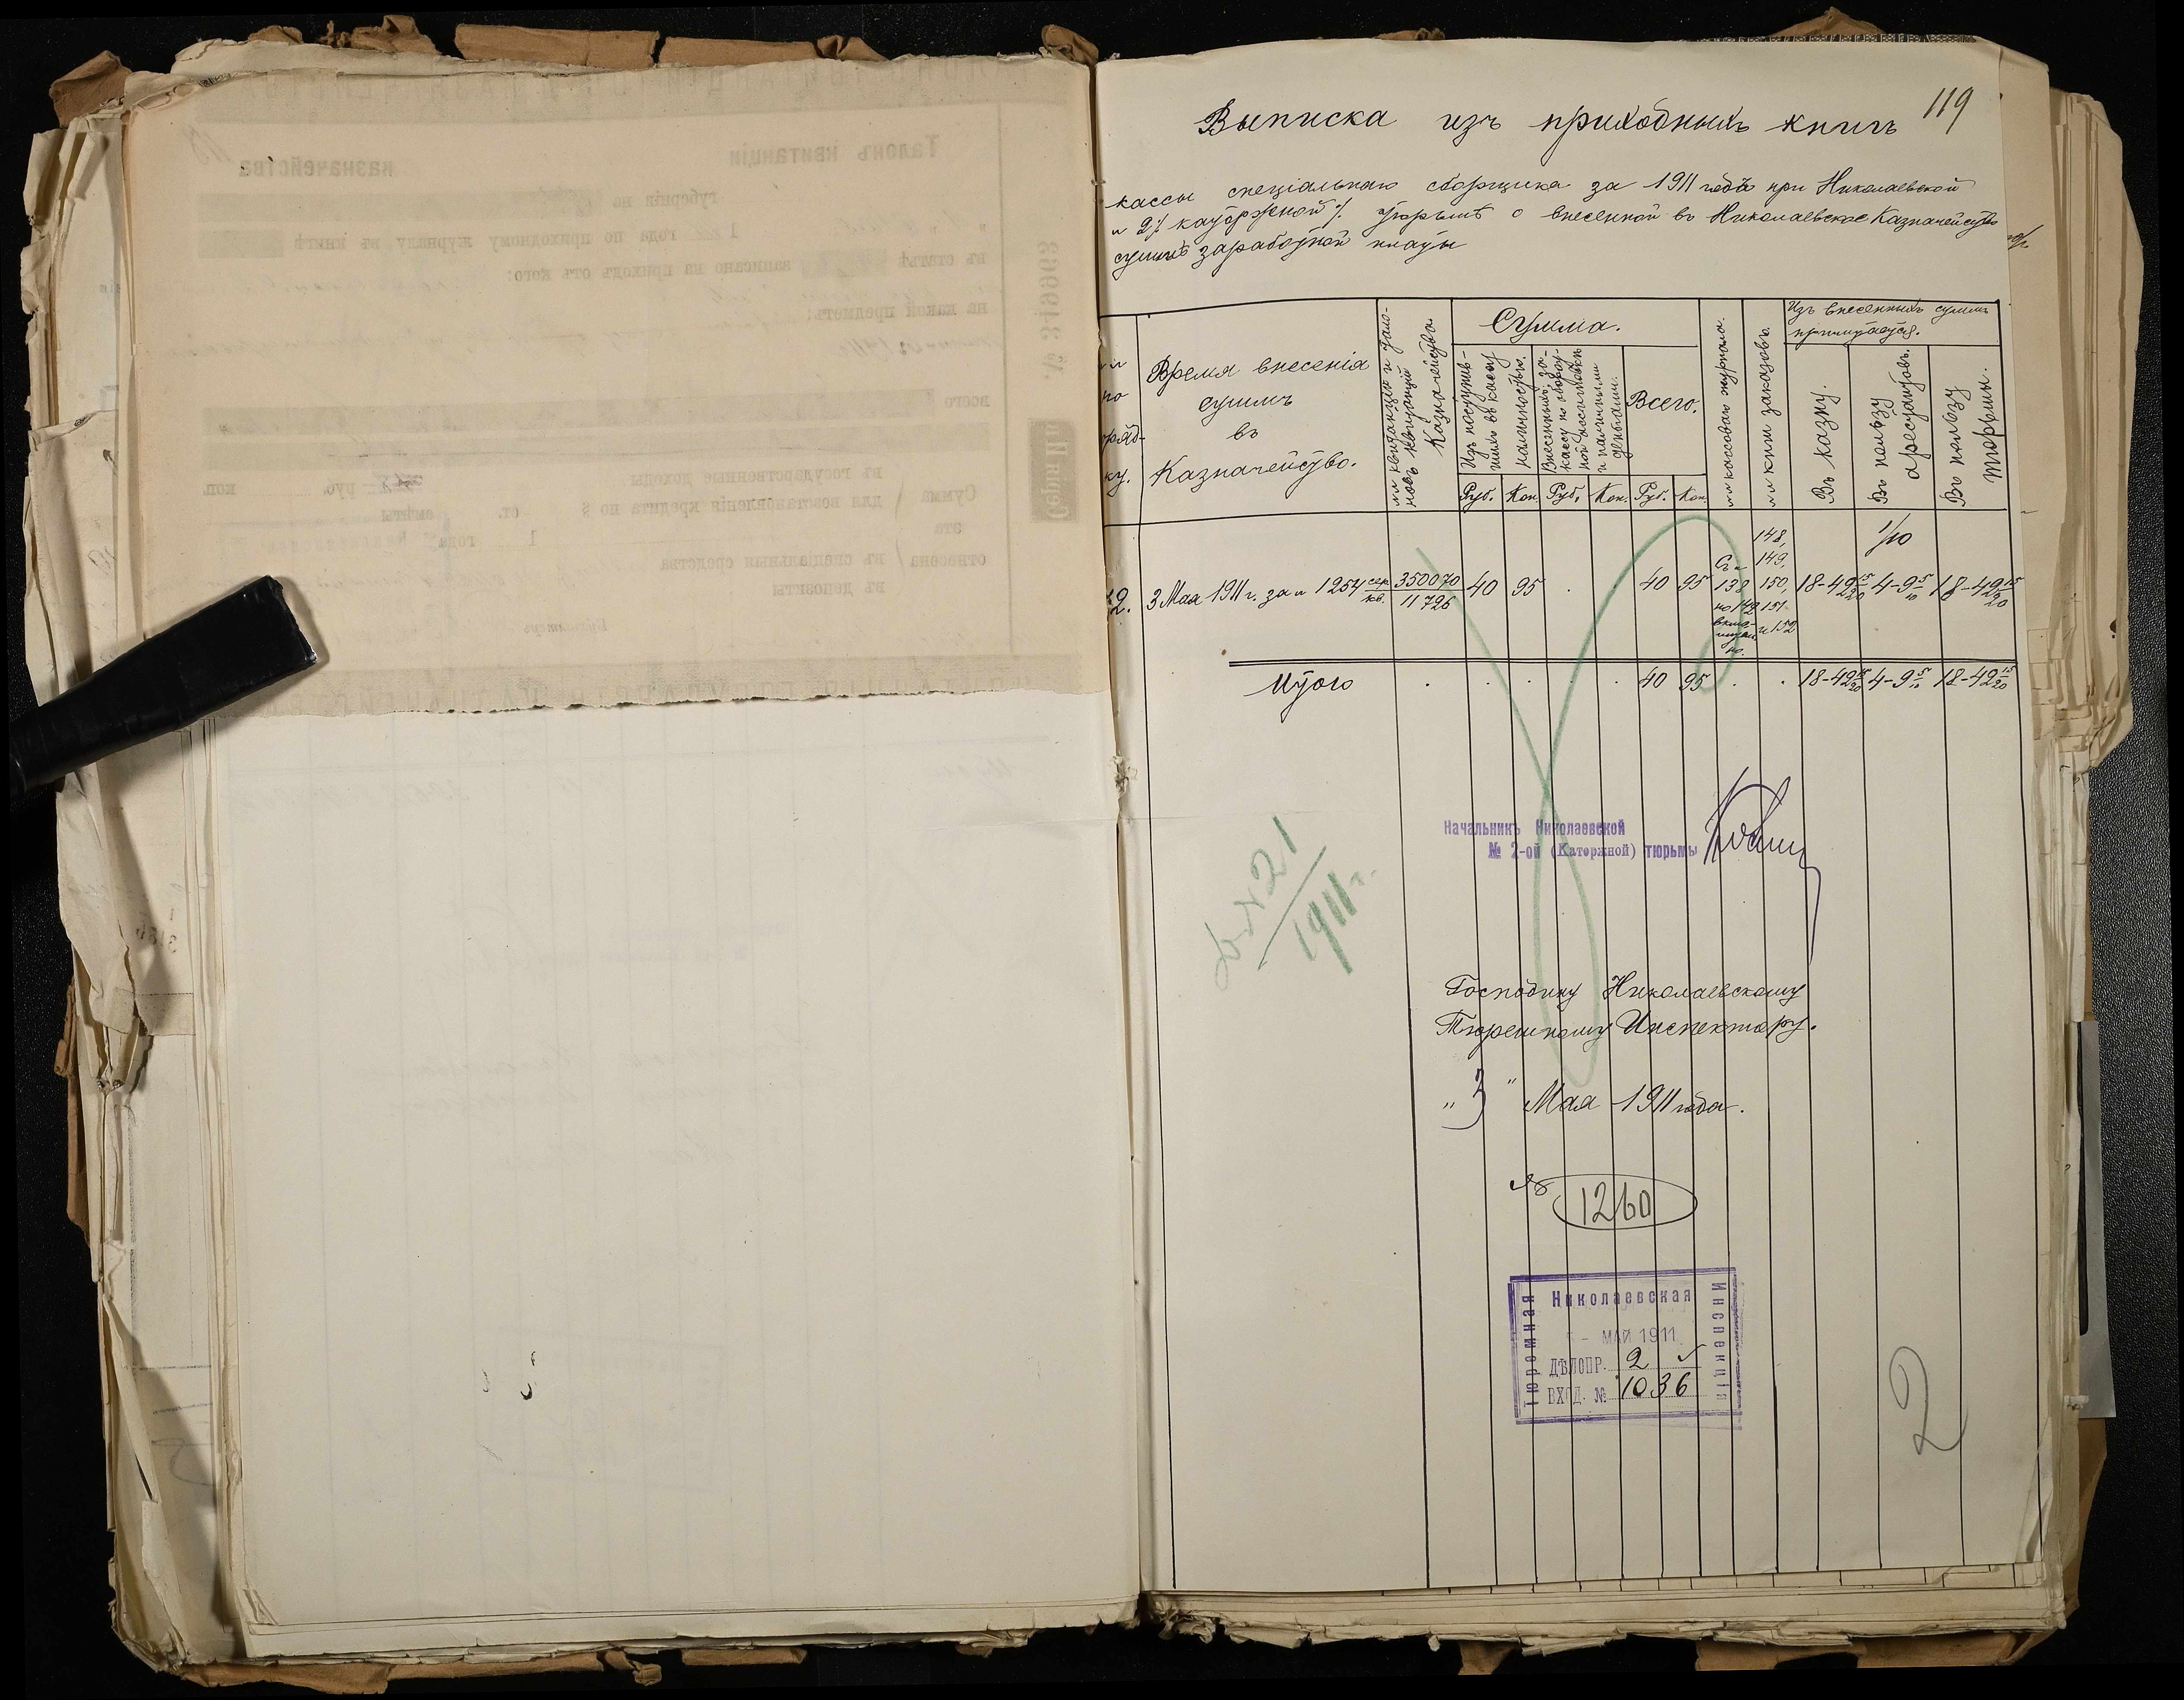 119
Выписка изъ приходныхъ книгъ
кассы спеціальнаго сборщика за 1911 годъ при Николаевской
№ 2 / каторжной / тюрьмѣ о внесенной въ Николаевское Казначейство
суммѣ заработной платы
№№
по
поряд-
ку.
Время внесенія
суммъ
въ
Казначейство.
№№ квитанціи и тало-
новъ квитанцій
Казначейства.
Сумма.
Изъ поступив-
шихъ въ кассу
наличностью.
и наличными
деньгами.
Всего.
Руб. Коп. Руб. Коп. Руб. Коп.
№№ кассоваго журнала.
№№ книги заказовъ.
Изъ внесенныхъ суммъ
причитается.
Въ казну.
Въ пользу
арестантовъ.
Въ пользу
тюрьмы.
1/10
2. 3 Мая 1911 г. за № 1254 сер. кв. 350070 / 11726 40 95 40 95 Съ № 138 по 142 включительно. 148, 149, 150, 151 и 152 18-42 15/20 4-9 5/10 18-42 15/20
Итого 40 95 18-42 15/20 4-9 5/10 18-42 15/20
Начальникъ Николаевской
№ 2-ой (Каторжной) тюрьмы
21
1911 г.
Господину Николаевскому
Тюремному Инспектору.
„ 3 " Мая 1911 года.
№ 1260
Николаевская
Тюремная
Инспекція
- МАЙ 1911
ДѢЛОПР. 2
ВХОД. № 1036
2
Талонъ квитанціи
казначейства
губерніи по
1 года по приходному журналу въ книгѣ
въ статьѣ записано на приходъ отъ кого:
на какой предметъ:
№ 349963
всего
Серія
Сумма эта отнесена
въ государственные доходы руб. коп.
для возстановленія кредита по § ст. смѣты
1 года
въ спеціальныя средства
въ депозиты